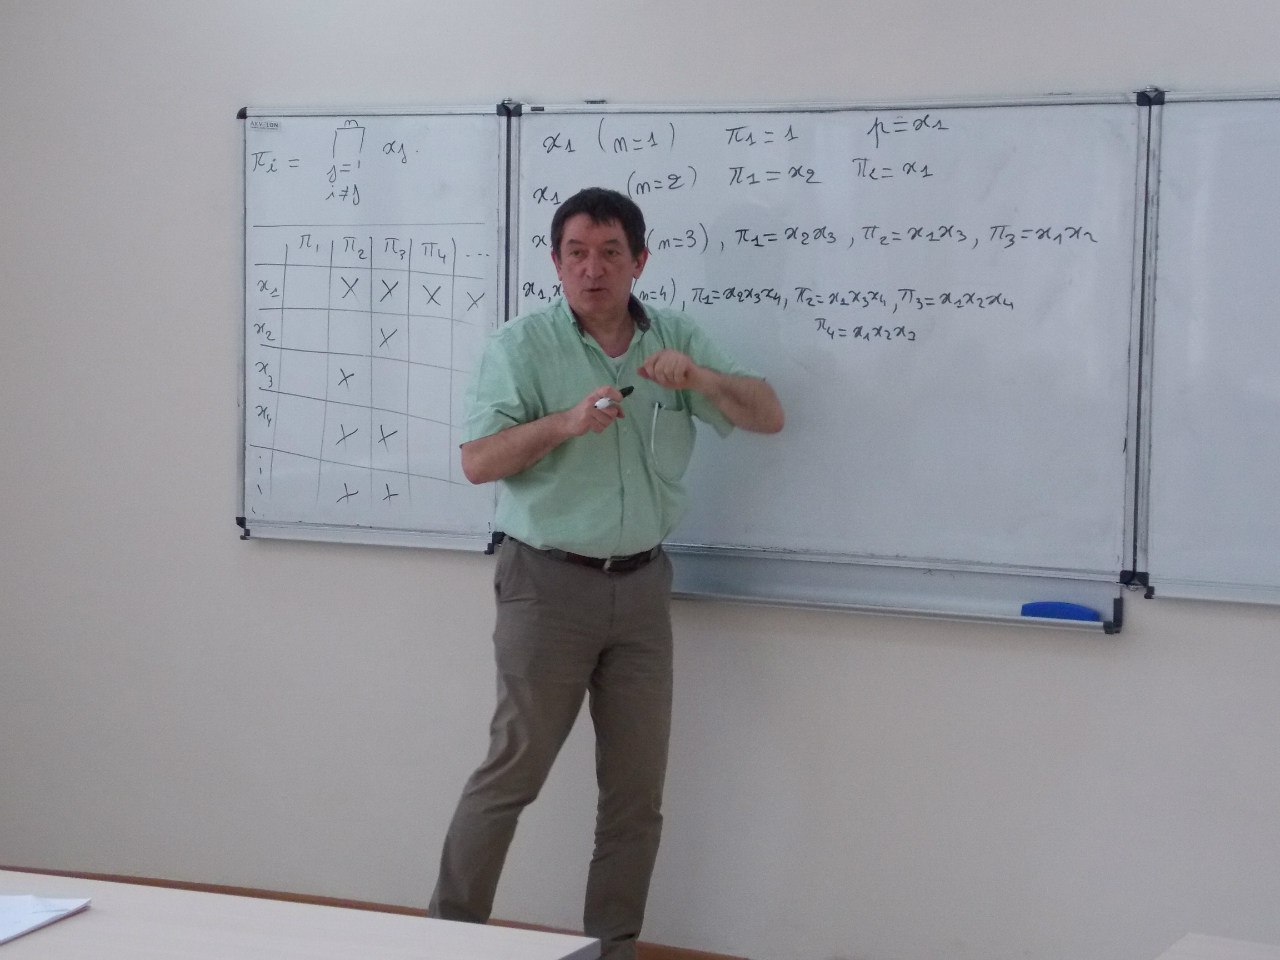 n
πi = ∏ xj.
j=1
i≠j
π1 π2 π3 π4 ...
x1 X X X X
x2 X
x3 X
x4 X X
X X
x1 (n=1) π1=1 p=x1
x1 (n=2) π1=x2 π2=x1
(n=3), π1=x2x3, π2=x1x3, π3=x1x2
x1, (n=4), π1=x2x3x4, π2=x1x3x4, π3=x1x2x4
π4=x1x2x3